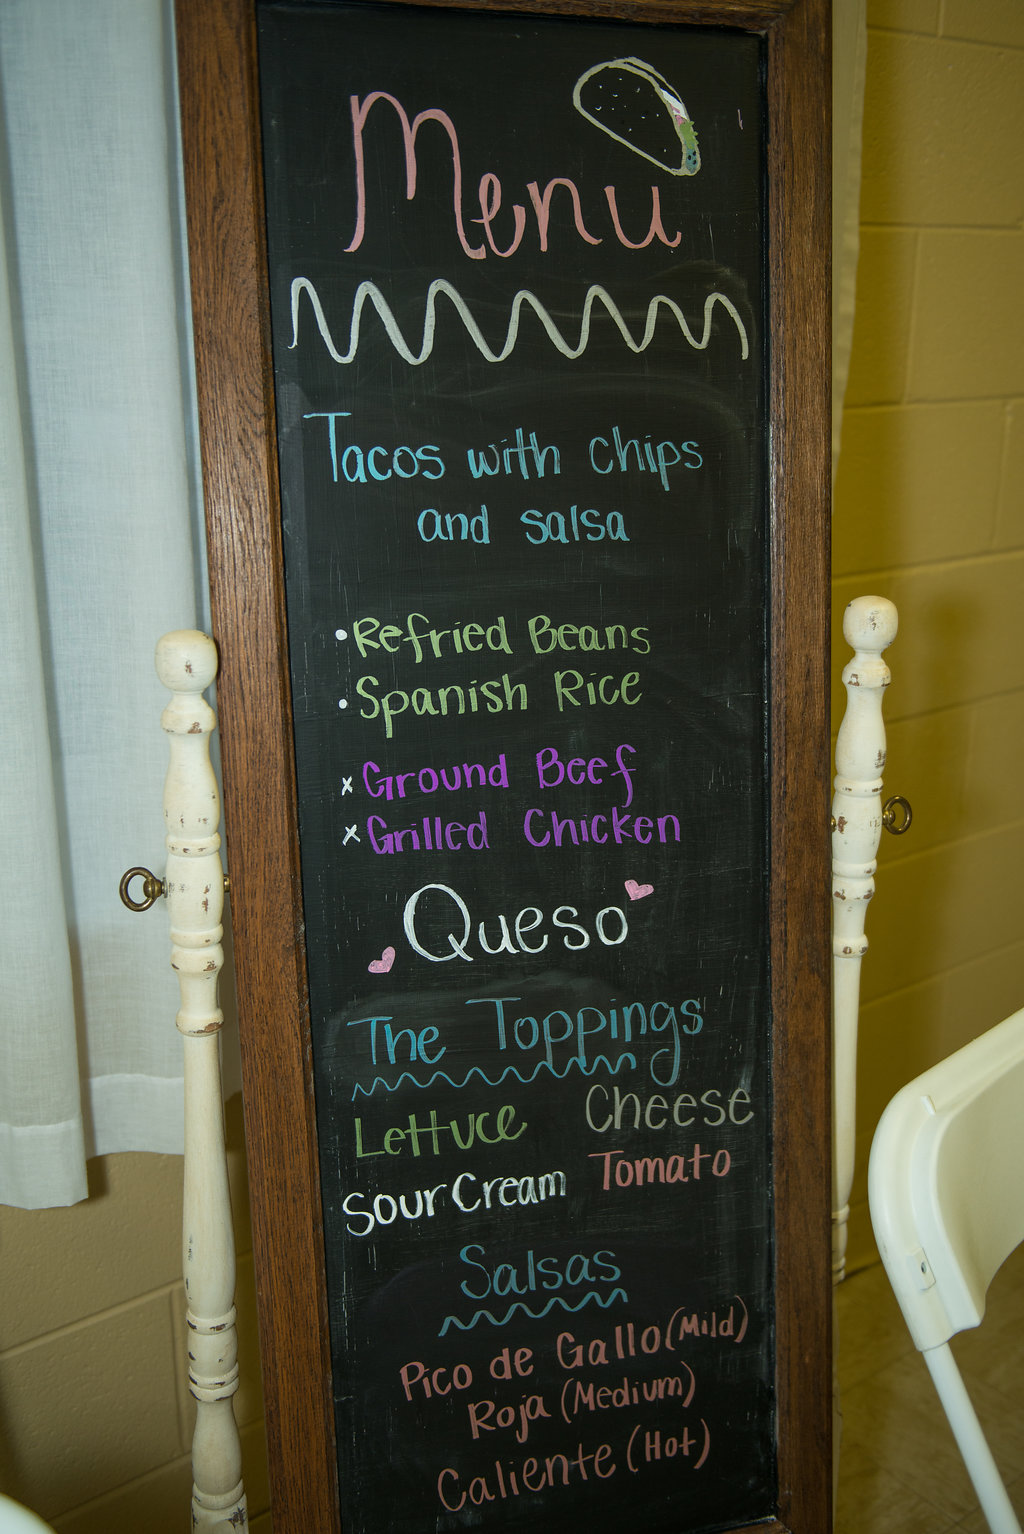 Menu
Tacos with chips
and salsa
• Refried Beans
• Spanish Rice
x Ground Beef
x Grilled Chicken
Queso
The Toppings
Lettuce Cheese
Sour Cream Tomato
Salsas
Pico de Gallo (Mild)
Roja (Medium)
Caliente (Hot)